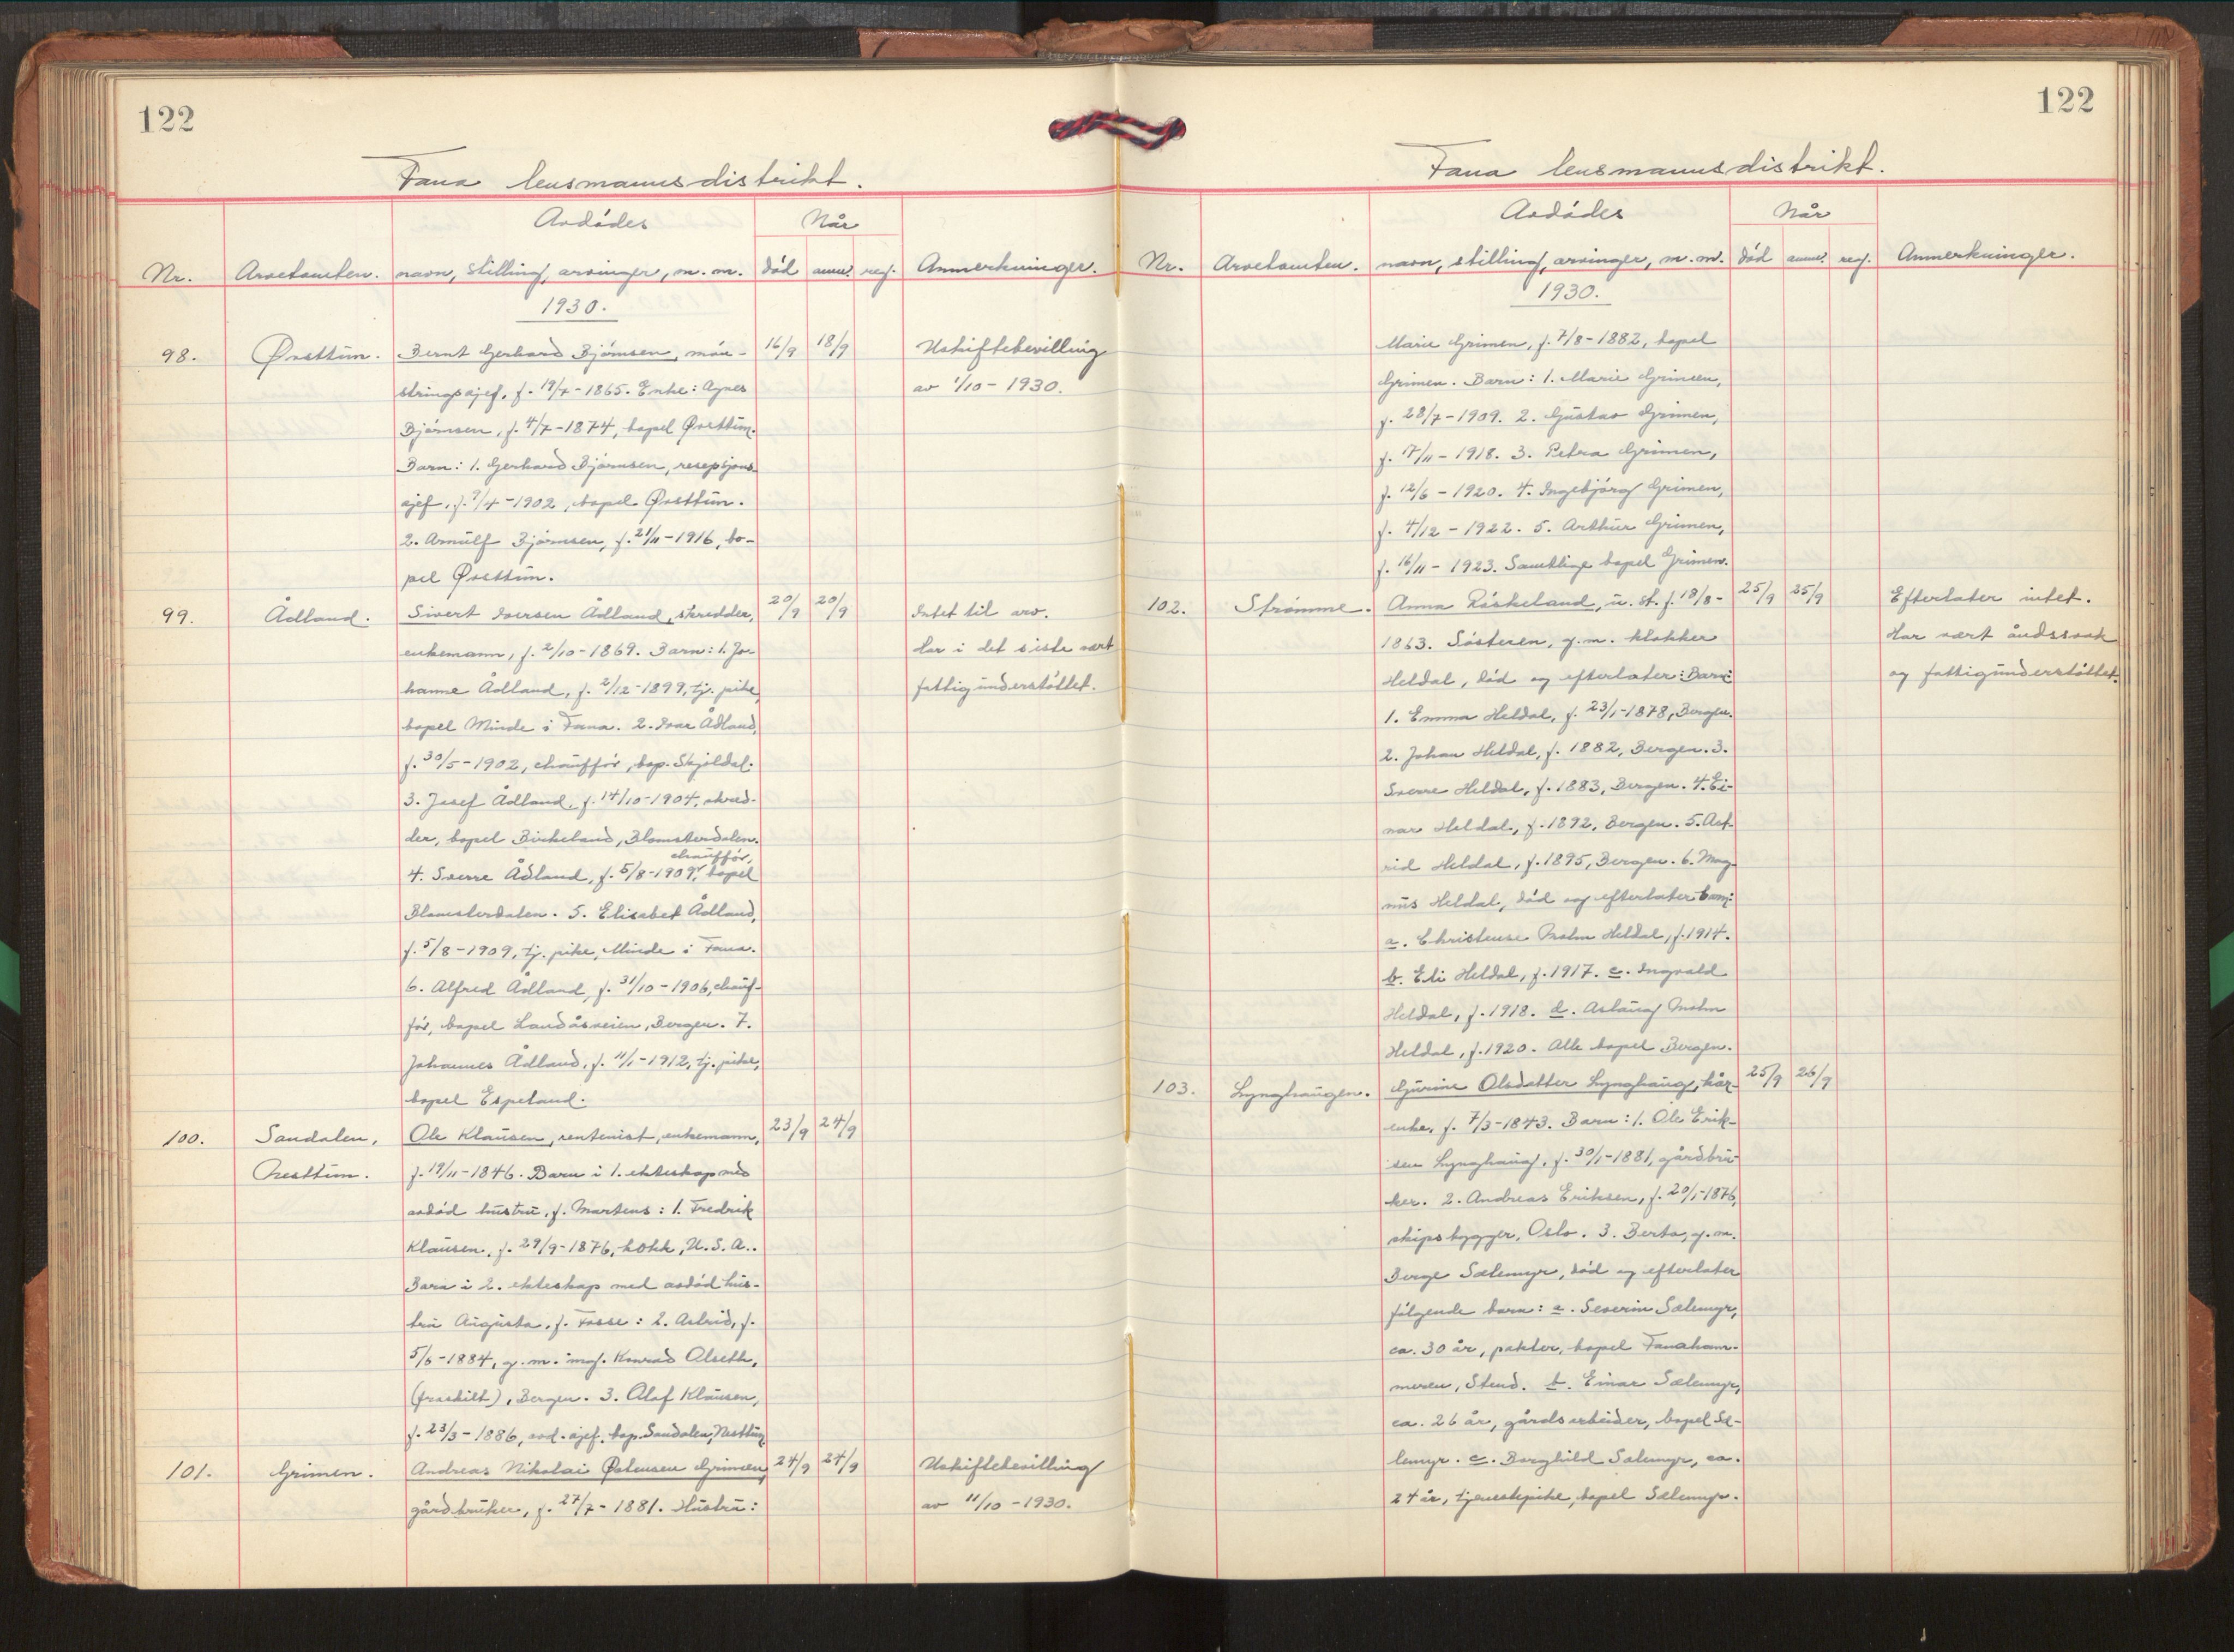 122
Fana lensmannsdistrikt.
Avdødes
Når
Nr. Arvetomten. navn, stilling, arvinger, m. m. død anm. reg. Anmerkninger.
1930.
98. Øvsttun. Bernt Gerhard Bjørnsen, møn- 16/9 18/9 Uskiftebevilling
stringssjef, f. 19/7-1865. Enke: Agnes av 1/10-1930.
Bjørnsen, f. 4/7-1874, bopel Øvsttun.
Barn: 1. Gerhard Bjørnsen, resepsjons-
sjef, f. 7/4-1902, bopel Øvsttun.
2. Arnulf Bjørnsen, f. 21/11-1916, bo-
pel Øvsttun.
99. Ådland. Sivert Iversen Ådland, skredder, 20/9 20/9 Intet til arv.
enkemann, f. 2/10-1869. Barn: 1. Jo- Har i det siste vært
hanne Ådland, f. 2/12-1899, tj. pike, fattigunderstøttet.
bopel Minde i Fana. 2. Ivar Ådland,
f. 30/5-1902, chauffør, bop. Skjoldal.
3. Josef Ådland, f. 14/10-1904, skred-
der, bopel Birkeland, Blomsterdalen.
chauffør,
4. Sverre Ådland, f. 5/8-1909, bopel
Blomsterdalen. 5. Elisabet Ådland,
f. 5/8-1909, tj. pike, Minde i Fana.
6. Alfred Ådland, f. 31/10-1906, chauf-
før, bopel Landåsveien, Bergen. 7.
Johannes Ådland, f. 11/1-1912, tj. pike,
bopel Espeland.
100. Sandalen, Ole Klausen, rentenist, enkemann, 23/9 24/9
Nesttun. f. 19/11-1846. Barn i 1. ekteskap med
avdød hustru, f. Martens: 1. Fredrik
Klausen, f. 29/9-1876, kokk, U.S.A..
Barn i 2. ekteskap med avdød hus-
tru Augusta, f. Fosse: 2. Astrid, f.
5/6-1884, g. m. ing. Konrad Alseth,
(fraskilt), Bergen. 3. Olaf Klausen,
f. 23/3-1886, avd. sjef, bop. Sandalen, Nesttun.
101. Grimen. Andreas Nikolai Østensen Grimen, 24/9 24/9 Uskiftebevilling
gårdbruker, f. 27/7-1881. Hustru: av 11/10-1930.
122
Fana lensmannsdistrikt.
Avdødes
Når
Nr. Arvetomten. navn, stilling, arvinger, m. m. død anm. reg. Anmerkninger.
1930.
Marie Grimen, f. 7/8-1882, bopel
Grimen. Barn: 1. Marie Grimen,
f. 28/7-1909. 2. Gustav Grimen,
f. 17/11-1918. 3. Petra Grimen,
f. 12/6-1920. 4. Ingebjørg Grimen,
f. 4/12-1922. 5. Arthur Grimen,
f. 16/11-1923. Samtlige bopel Grimen.
102. Strømme. Anna Røskeland, u. st. f. 18/8- 25/9 25/9 Efterlater intet.
1863. Søsteren, g.m. klokker Har vært åndssvak
Heldal, død og efterlater: Barn: og fattigunderstøttet.
1. Emma Heldal, f. 23/1-1878, Bergen.
2. Johan Heldal, f. 1882, Bergen. 3.
Sverre Heldal, f. 1883, Bergen. 4. Ei-
nar Heldal, f. 1892, Bergen. 5. Ast-
rid Heldal, f. 1895, Bergen. 6. Mag-
nus Heldal, død og efterlater barn:
a. Christense Heldal, f. 1914.
b. Eli Heldal, f. 1917. c. Ingvald
Heldal, f. 1918. d. Aslaug
Heldal, f. 1920. Alle bopel Bergen.
103. Lynghaugen. Gurine Olsdatter Lynghaug, kår- 25/9 26/9
enke, f. 7/3-1843. Barn: 1. Ole Erik-
sen Lynghaug, f. 30/1-1881, gårdbru-
ker. 2. Andreas Eriksen, f. 20/1-1876,
skipsbygger, Oslo. 3. Berta, g. m.
Berge Sælemyr, død og efterlater
følgende barn: a. Severin Sælemyr,
ca. 30 år, pakter, bopel Fanaham-
meren, Stend. b. Einar Sælemyr,
ca. 26 år, gårdsarbeider, bopel Sæ-
lemyr. c. Borghild Sælemyr, ca.
24 år, tjenestepike, bopel Sælemyr.